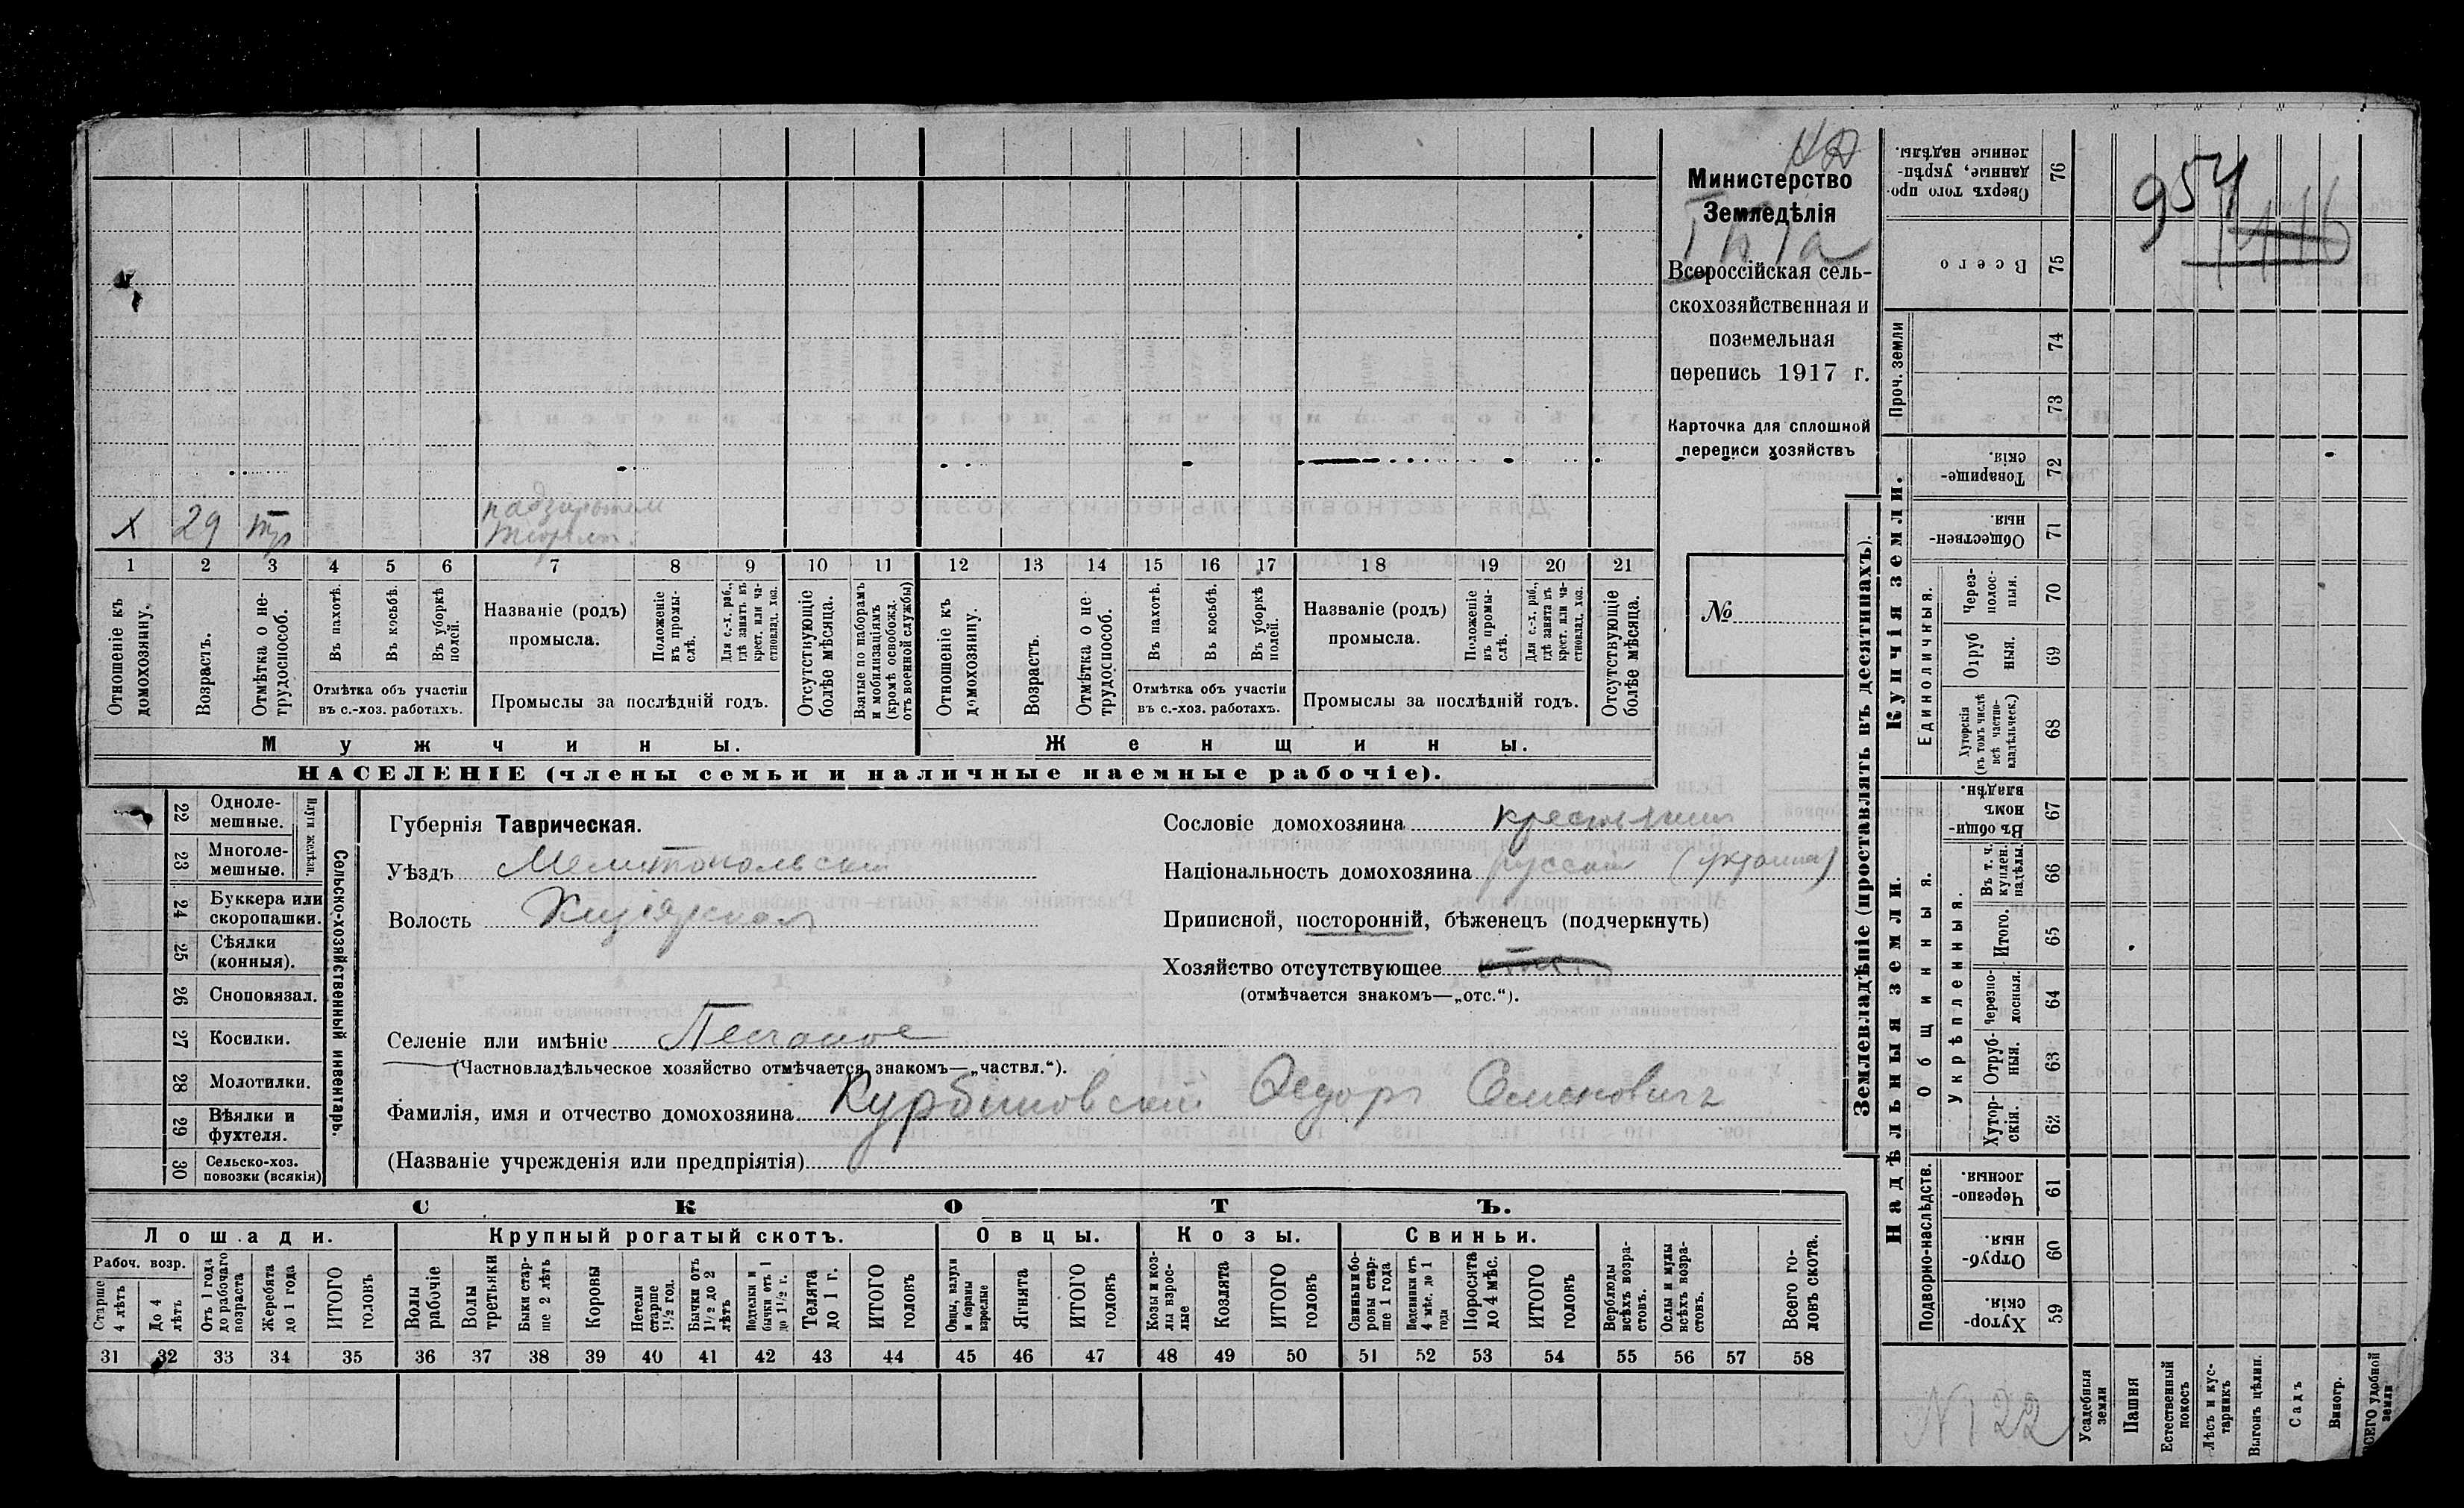 Министерство
Земледѣлія
Всероссійская сель-
скохозяйственная и
поземельная
перепись 1917 г.
Карточка для сплошной
переписи хозяйствъ
№
X 29
1 2 3 4 5 6 7 8 9 10 11 12 13 14 15 16 17 18 19 20 21
Отношеніе къ домохозяину.
Возрастъ.
Отмѣтка о не-
трудоспособ.
Въ пахотѣ.
Въ косьбѣ.
Въ уборкѣ
полей.
Отмѣтка объ участіи
въ с.-хоз. работахъ.
Названіе (родъ)
промысла.
Положеніе
въ промы-
слѣ.
Для с.-х. раб.,
гдѣ занятъ въ
крест. или ча-
стновлад. хоз.
Промыслы за послѣдній годъ.
Отсутствующіе
болѣе мѣсяца.
Взятые по наборамъ
и мобилизаціямъ
(кромѣ освобожд.
отъ военной службы)
Отношеніе къ
домохозяину.
Возрастъ.
Отмѣтка о не-
трудоспособ.
Въ пахотѣ.
Въ косьбѣ.
Въ уборкѣ
полей.
Отмѣтка объ участіи
въ с.-хоз. работахъ.
Названіе (родъ)
промысла.
Положеніе
въ промы-
слѣ.
Для с.-х. раб.,
гдѣ занята въ
крест. или ча-
стновлад. хоз.
Промыслы за послѣдній годъ.
Отсутствующіе
болѣе мѣсяца.
Мужчины.
Женщины.
НАСЕЛЕНІЕ (члены семьи и наличные наемные рабочіе).
22 Одноле-
мешные.
23 Многоле-
мешные.
Плуги желѣзн.
24 Буккера или
скоропашки.
25 Сѣялки
(конныя).
26 Сноповязал.
27 Косилки.
28 Молотилки.
29 Вѣялки и
фухтеля.
30 Сельско-хоз.
повозки (всякія)
Сельско-хозяйственный инвентарь.
Губернія Таврическая.
Уѣздъ Мелитопольскій
Волость
Селеніе или имѣніе Песчаное
(Частновладѣльческое хозяйство отмѣчается знакомъ—„частвл.“).
Фамилія, имя и отчество домохозяина Курбановскій Федоръ Семеновичъ
(Названіе учрежденія или предпріятія)
Сословіе домохозяина крестьянинъ
Національность домохозяина русскій
Приписной, посторонній, бѣженецъ (подчеркнуть)
Хозяйство отсутствующее
(отмѣчается знакомъ—„отс.“).
СКОТЪ.
Лошади.
Рабоч. возр.
Старше
4 лѣтъ
До 4
лѣтъ
Отъ 1 года
до рабочаго
возраста
Жеребята
до 1 года
ИТОГО
головъ
Крупный рогатый скотъ.
Волы
рабочіе
Волы
третьяки
Быки стар-
ше 2 лѣтъ
Коровы
Нетели
старше
1½ год.
Бычки отъ
1½ до 2
лѣтъ
Подтелки и
бычки отъ 1
до 1½ г.
Телята
до 1 г.
ИТОГО
головъ
Овцы.
Овцы, валухи
и бараны
взрослые
Ягнята
ИТОГО
головъ
Козы.
Козы и коз-
лы взрос-
лые
Козлята
ИТОГО
головъ
Свиньи.
Свиньи и бо-
ровы стар-
ше 1 года
Подсвинки отъ
4 мѣс. до 1
года
Поросята
до 4 мѣс.
ИТОГО
головъ
Верблюды
всѣхъ возра-
стовъ.
Ослы и мулы
всѣхъ возра-
стовъ.
Всего го-
ловъ скота.
31 32 33 34 35 36 37 38 39 40 41 42 43 44 45 46 47 48 49 50 51 52 53 54 55 56 57 58
Землевладѣніе (проставлять въ десятинахъ).
Купчія земли.
Надѣльныя земли.
Сверхъ того про-
данные, укрѣп-
ленные надѣлы.
76
Всего
75
Проч. земли
74
73
Товарище-
скія.
72
Обществен-
ныя.
71
Единоличныя.
Через-
полос-
ныя.
70
Отруб
ныя.
69
Хуторскія
(въ томъ числѣ
всѣ частно-
владѣльческ.)
68
Общинныя.
Въ общи-
номъ
владѣн.
67
Укрѣпленныя.
Въ т. ч.
куплен.
надѣлы.
66
Итого.
65
Черезпо-
лосныя.
64
Отруб-
ныя.
63
Хутор-
скія.
62
Подворно-наслѣдств.
Черезпо-
лосныя.
61
Отруб-
ныя.
60
Хутор-
скія.
59
Усадебныя
земли
Пашня
Естественный
покосъ
Лѣсъ и кус-
тарникъ
Выгонъ цѣлин.
Садъ
Виногр.
ВСЕГО удобной
земли
954
N 122